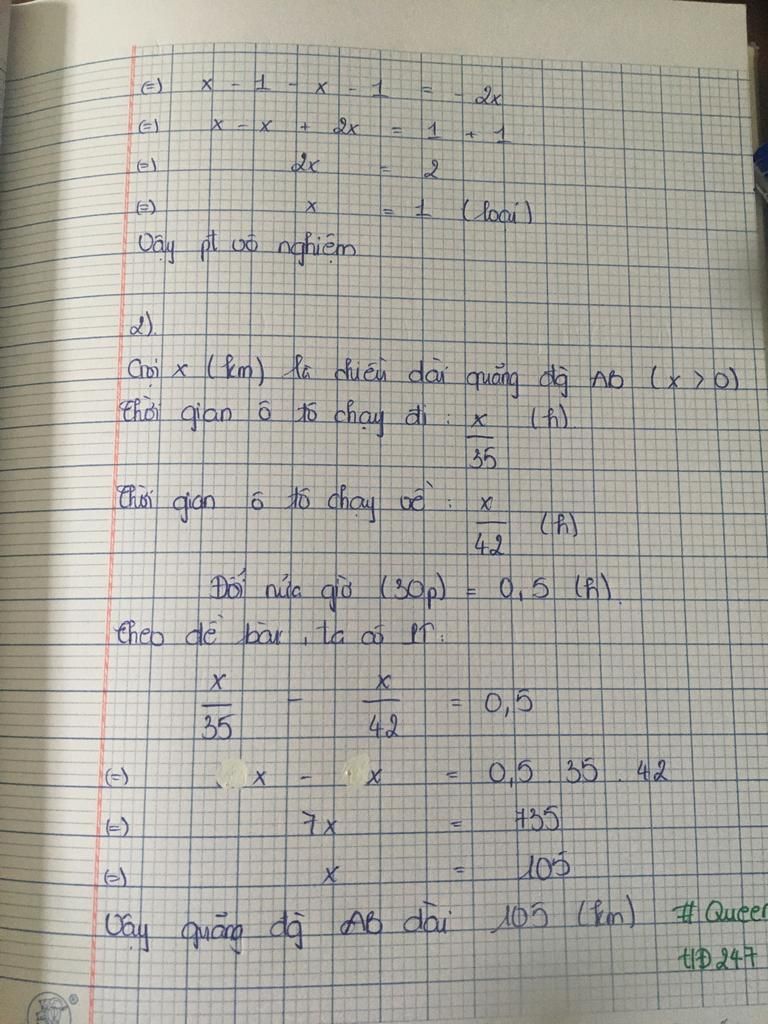 (=) x - 1 - x - 1 = - 2x
(=) x - x + 2x = 1 + 1
(=) 2x = 2
(=) x = 1 (loại)
Vậy pt vô nghiệm
2).
Gọi x (km) là chiều dài quãng đg AB (x > 0)
Thời gian ô tô chạy đi : x/35 (h)
Thời gian ô tô chạy về : x/42 (h)
Đổi nửa giờ (30p) = 0,5 (h).
Theo đề bài, ta có PT:
x/35 - x/42 = 0,5
(=) x - x = 0,5 . 35 . 42
(=) 7x = 735
(=) x = 105
Vậy quãng đg AB dài 105 (km) # Queen
HD247